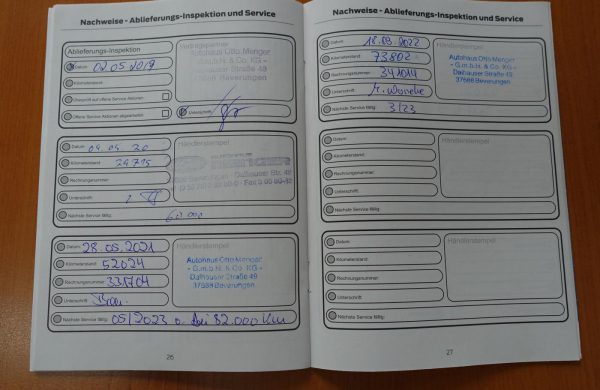 Nachweise - Ablieferungs-Inspektion und Service
Ablieferungs-Inspektion
Datum: 02 05 2019
Kilometerstand:
Überprüft auf offene Service Aktionen
Offene Service Aktionen abgearbeitet
Vertragspartner
Autohaus Otto Menger
G.m.b.H. & Co. KG -
Dalhauser Straße 49
37688 Beverungen
Unterschrift:
Datum: 04. 04. 20
Kilometerstand:
24715
Rechnungsnummer:
Unterschrift:
Nächste Service fällig:
Händlerstempel
Datum: 28.05.2021
Kilometerstand: 52024
Rechnungsnummer: 331704
Unterschrift:
Nächste Service fällig: 05/2023 o. bei 82.000 Km
Händlerstempel
Autohaus Otto Menger
- G.m.b.H. & Co. KG -
Dalhauser Straße 49
37688 Beverungen
26
Nachweise - Ablieferungs-Inspektion und Service
Datum: 18.03.2022
Kilometerstand: 73802
Rechnungsnummer: 341014
Unterschrift:
Nächste Service fällig: 3/23
Händlerstempel
Autohaus Otto Menger
- G.m.b.H. & Co. KG -
Dalhauser Straße 49
37688 Beverungen
Datum:
Kilometerstand:
Rechnungsnummer:
Unterschrift:
Nächste Service fällig:
Händlerstempel
Datum:
Kilometerstand:
Rechnungsnummer:
Unterschrift:
Nächste Service fällig:
Händlerstempel
27